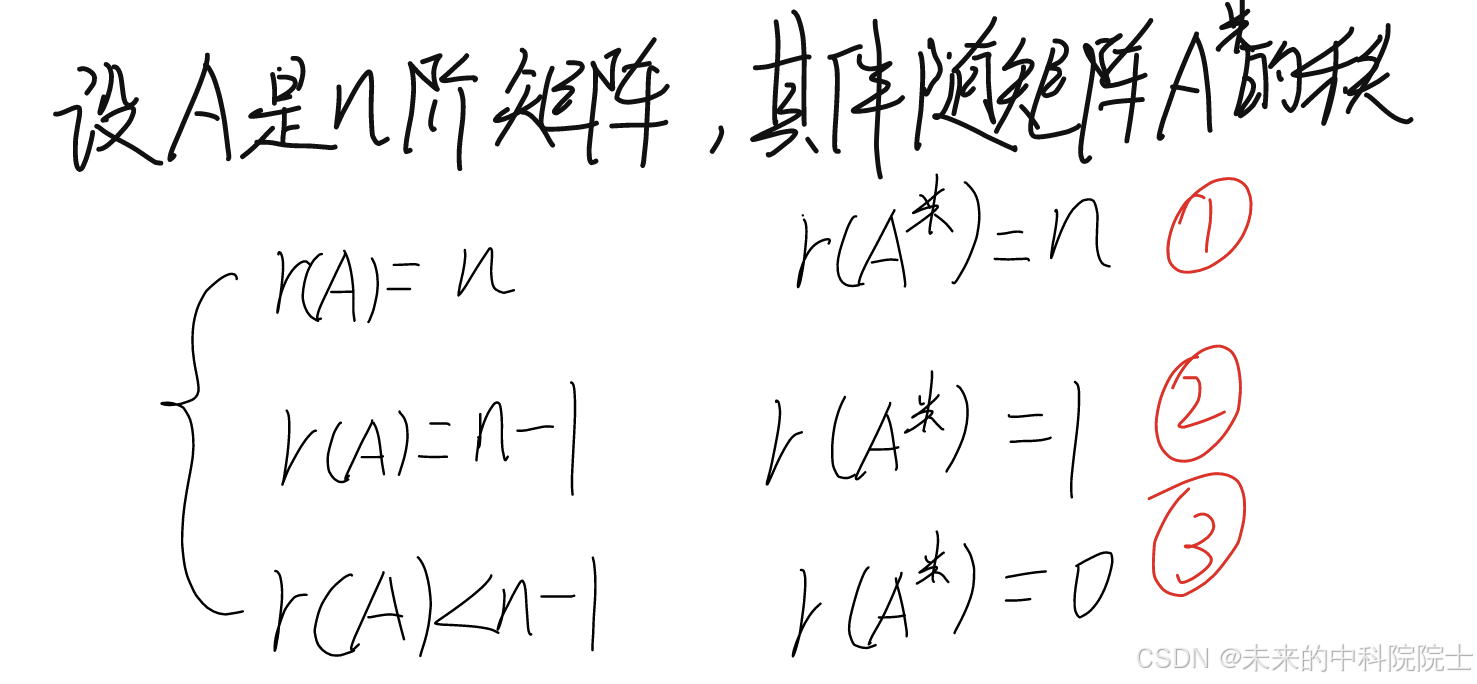 设A是n阶矩阵，其伴随矩阵A*的秩
r(A)=n r(A*)=n ①
r(A)=n-1 r(A*)=1 ②
r(A)<n-1 r(A*)=0 ③
CSDN @未来的中科院院士